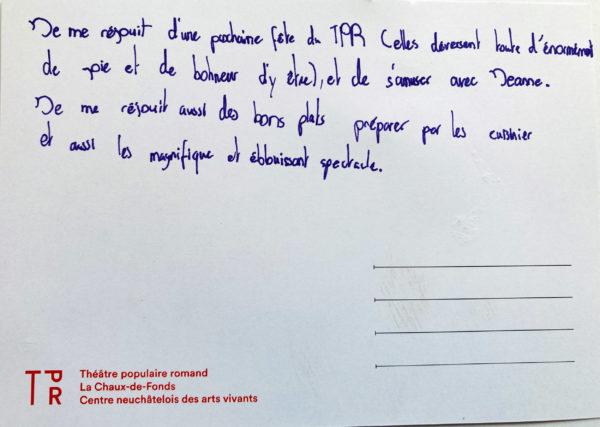 Je me réjouit d'une prochaine fête du TPR (elles devraient toute d'énormément
de joie et de bohneur d'y être), et de s'amuser avec Jeanne.
Je me réjouit aussi des bons plats préparer par les cuisinier
et aussi les magnifique et ébbouissant spectacle.
TPR
Théâtre populaire romand
La Chaux-de-Fonds
Centre neuchâtelois des arts vivants